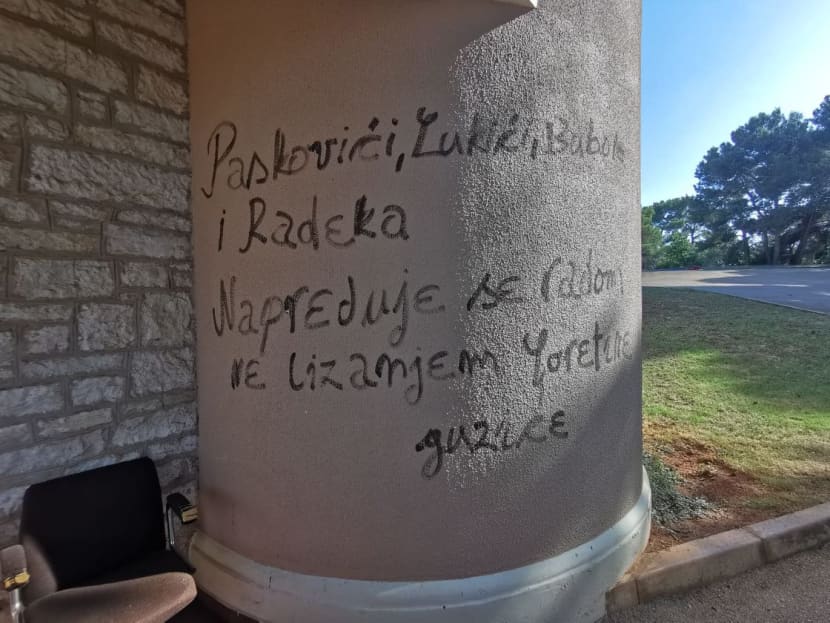 Paskovići, Lukići, Babok
i Radeka
Napreduje se radom
ne lizanjem Loretine
guzice